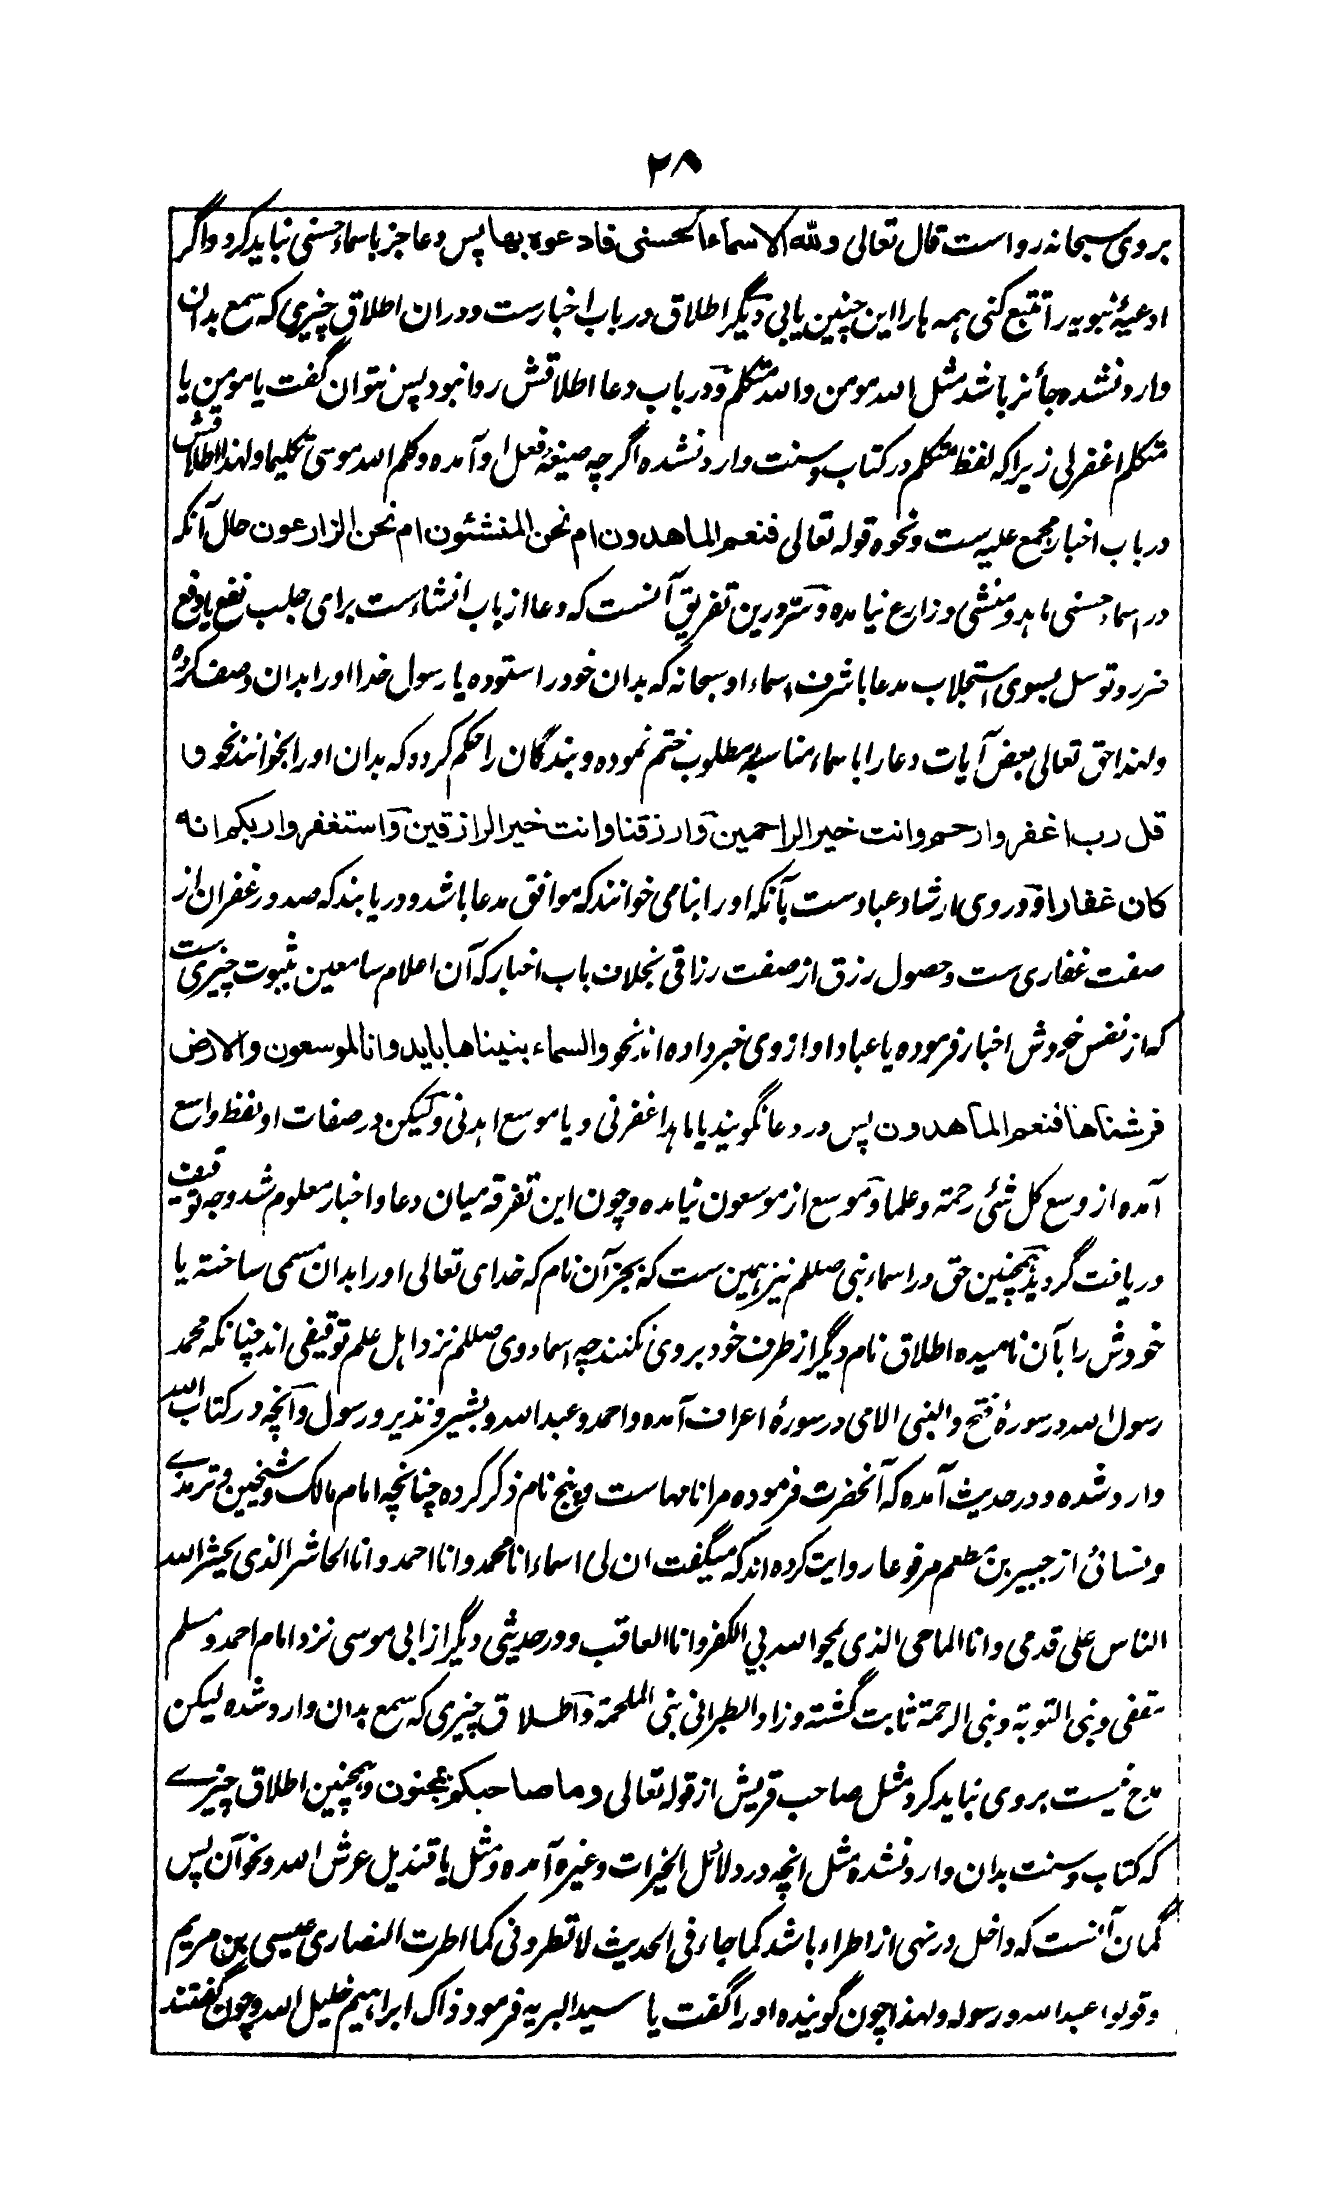 ۲۸
بروی سبحانه رواست قال تعالی ولله الاسماء الحسنی فادعوه بها پس دعا جز باسماء حسنی نباید کرد و اگر
ادعیۀ نبویه را تتبع کنی همه ها را این چنین یابی دیگر اطلاق در باب اخبارست و دران اطلاق چیزی که سمع بدان
وارد نشده جائز باشد مثل الله مومن والله متکلم و در باب دعا اطلاقش روا نبود پس نتوان گفت یا مومن یا
متکلم اغفرلی زیرا که لفظ متکلم در کتاب و سنت وارد نشده اگرچه صیغۀ فعل او آمده و کلم الله موسی تکلیما ولهذا اطلاقش
در باب اخبار مجمع علیه ست و نحوه قوله تعالی فنعم الماهدون ام نحن المنشئون ام نحن الزارعون حال آنکه
در اسماء حسنی ماهد و منشی و زارع نیامده و سر درین تفریق آنست که دعا از باب انشاءست برای جلب نفع یا دفع
ضرر و توسل بسوی استجلاب مدعا باشرف اسماء او سبحانه که بدان خود را ستوده یا رسول خدا او را بدان وصف کرده
ولهذا حق تعالی بعض آیات دعا را باسماء مناسبه مطلوب ختم نموده و بندگان را حکم کرده که بدان او را بخوانند نحو
قل رب اغفر وارحم وانت خیر الراحمین وارزقنا وانت خیر الرازقین واستغفروا ربکم انه
کان غفارا و در وی ارشاد عبادست بآنکه او را بنامی خوانند که موافق مدعا باشد و دریابند که صدور غفران از
صفت غفاری ست و حصول رزق از صفت رزاقی بخلاف باب اخبار که آن اعلام سامعین بثبوت چیزی ست
که از نفس خودش اخبار فرموده یا عباد او از وی خبر داده اند نحو والسماء بنیناها باید وانا لموسعون والارض
فرشناها فنعم الماهدون پس در دعا نگویند یا ماهد اغفرلی و یا موسع اهدنی و لیکن در صفات او لفظ واسع
آمده از وسع کل شئی رحمة وعلما و موسع از موسعون نیامده و چون این تفرقه میان دعا و اخبار معلوم شد وجه توقیف
دریافت گردید همچنین حق در اسماء نبی صللم نیز همین ست که بجز آن نام که خدای تعالی او را بدان مسمی ساخته یا
خودش را بآن نامیده اطلاق نام دیگر از طرف خود بر وی نکنند چه اسماء وی صللم نزد اهل علم توقیفی اند چنانکه محمد
رسول الله در سورۀ فتح و النبی الامی در سورۀ اعراف آمده و احمد و عبد الله و بشیر و نذیر و رسول و آنچه در کتاب الله
وارد شده و در حدیث آمده که آنحضرت فرموده مرا نامهاست و پنج نام ذکر کرده چنانچه امام مالک و شیخین و ترمذی
و نسائی از جبیر بن مطعم مرفوعا روایت کرده اند که میگفت ان لی اسماء انا محمد وانا احمد وانا الحاشر الذی یحشر الله
الناس علی قدمی وانا الماحی الذی یمحو الله بی الکفر وانا العاقب و در حدیثی دیگر از ابی موسی نزد امام احمد و مسلم
مقفی و نبی التوبة و نبی الرحمة ثابت گشته و زاد الطبرانی نبی الملحمة و اطلاق چیزی که سمع بدان وارد شده لیکن
مدح نیست بر وی نباید کرد مثل صاحب قریش از قوله تعالی وما صاحبکم بمجنون و همچنین اطلاق چیزے
که کتاب و سنت بدان وارد نشده مثل انچه در دلائل الخیرات و غیره آمده و مثل یا قندیل عرش الله و نحو آن پس
گمان آنست که داخل در نهی از اطراء باشد کما جاء فی الحدیث لا تطرونی کما اطرت النصاری عیسی بن مریم
وقولوا عبد الله ورسوله ولهذا چون گوینده او را گفت یا سید البریه فرمود ذاک ابراهیم خلیل الله و چون گفتند